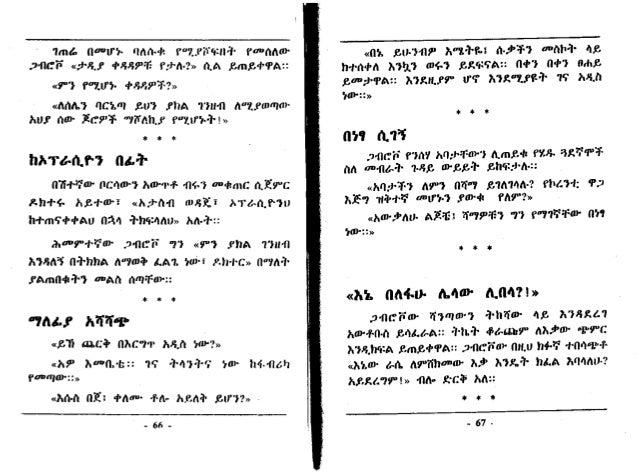 ገጠሬ በመሆኑ ባለሱቁ የሚያሾፍበት የመሰለው
ጋብሮቮ «ታዲያ ቀዳዳዎቹ የታሉ?» ሲል ይጠይቀዋል።
«ምን የሚሆኑ ቀዳዳዎች?»
«ለሰሌን ባርኔጣ ይህን ያክል ገንዘብ ለሚያወጣው
አህያ ሰው ጆሮዎች ማሾለኪያ የሚሆኑት!»
* * *
ከኦፕራሲዮን በፊት
በሽተኛው ቦርሳውን አውጥቶ ብሩን መቁጠር ሲጀምር
ዶክተሩ አይተው፣ «አታስብ ወዳጄ፣ ኦፕራሲዮንህ
ከተጠናቀቀልህ በኋላ ትከፍላለህ» አሉት።
ሕመምተኛው ጋብሮቮ ግን «ምን ያክል ገንዘብ
እንዳለኝ በትክክል ለማወቅ ፈልጌ ነው፣ ዶክተር» በማለት
ያልጠበቁትን መልስ ሰጣቸው።
* * *
ማለፊያ አሻሻጭ
«ይኸ ጨርቅ በእርግጥ አዲስ ነው?»
«አዎ እመቤቴ። ገና ትላንትና ነው ከፋብሪካ
የመጣው።»
«እሱስ በጀ፤ ቀለሙ ቶሎ አይለቅ ይሆን?»
- 66 -
«በኔ ይሁንብዎ እሜትዬ፤ ሱቃችን መስኮት ላይ
ከተሰቀለ እንኳን ወሩን ይደፍናል። በቀን በቀን ፀሐይ
ይመታዋል። እንደዚያም ሆኖ እንደሚያዩት ገና አዲስ
ነው።»
* * *
በነፃ ሲገኝ
ጋብሮቮ የንስሃ አባታቸውን ሊጠይቁ የሄዱ ጓደኛሞች
ስለ መብራት ጉዳይ ውይይት ይከፍታሉ።
«አባታችን ለምን በሻማ ይገለገላሉ? የኮረንቲ ዋጋ
እጅግ ዝቅተኛ መሆኑን ያውቁ የለም?»
«አውቃለሁ ልጆቼ፤ ሻማዎችን ግን የማገኛቸው በነፃ
ነው።»
* * *
«እኔ በለፋሁ ሌላው ሊበላ?!»
ጋብሮቮው ሻንጣውን ትከሻው ላይ እንዳደረገ
አውቶቡስ ይሳፈራል። ትኬት ቆራጩም ለእቃው ጭምር
እንዲከፍል ይጠይቀዋል። ጋብሮቮው በዚህ ክፉኛ ተበሳጭቶ
«እኔው ራሴ ለምሸከመው እቃ እንዴት ክፈል እባላለሁ?
አይደረግም!» ብሎ ድርቅ አለ።
* * *
- 67 -